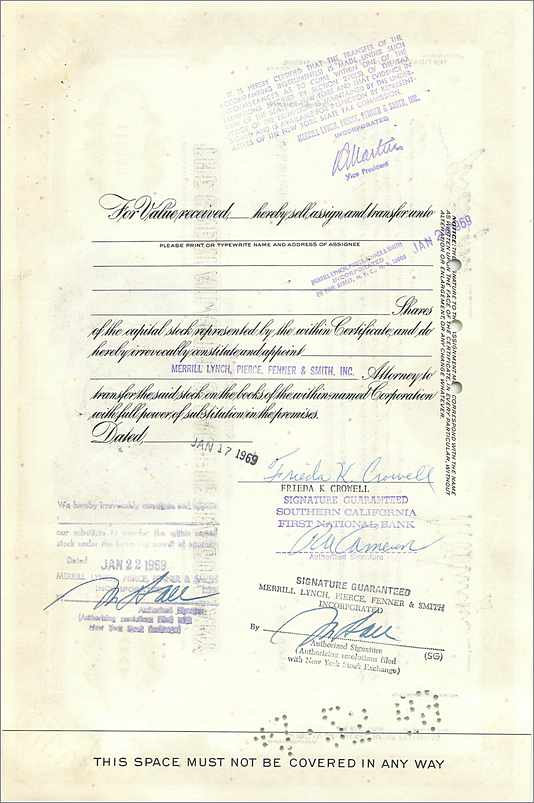 IT IS HEREBY CERTIFIED THAT THE TRANSFER OF THE
ACCOMPANYING INSTRUMENT IS MADE UNDER SUCH
CIRCUMSTANCES AS TO COME WITHIN ONE OF THE
NEW YORK STATE TAX COMMISSION.
MERRILL LYNCH, PIERCE, FENNER & SMITH, INC.
INCORPORATED
Martin
Vice President
For Value received, hereby sell, assign, and transfer unto
PLEASE PRINT OR TYPEWRITE NAME AND ADDRESS OF ASSIGNEE
JAN 2 1969
MERRILL LYNCH, PIERCE, FENNER & SMITH
INCORPORATED
Shares
of the capital stock represented by the within Certificate, and do
hereby irrevocably constitute and appoint
MERRILL LYNCH, PIERCE, FENNER & SMITH, INC. Attorney to
transfer the said stock on the books of the within-named Corporation
with full power of substitution in the premises.
Dated, JAN 17 1969
NOTICE: THE SIGNATURE TO THIS ASSIGNMENT MUST CORRESPOND WITH THE NAME
AS WRITTEN UPON THE FACE OF THE CERTIFICATE IN EVERY PARTICULAR, WITHOUT
ALTERATION OR ENLARGEMENT, OR ANY CHANGE WHATEVER.
Frieda K Crowell
FRIEDA K CROWELL
SIGNATURE GUARANTEED
SOUTHERN CALIFORNIA
FIRST NATIONAL BANK
Cameron
Authorized Signature
We hereby irrevocably constitute and appoint
our substitute to transfer the within named
stock under the foregoing power of attorney
Dated JAN 22 1969
MERRILL LYNCH, PIERCE, FENNER & SMITH
INCORPORATED
Authorized Signature
(Authorizing resolutions filed with
New York Stock Exchange)
SIGNATURE GUARANTEED
MERRILL LYNCH, PIERCE, FENNER & SMITH
INCORPORATED
By
Authorized Signature
(Authorizing resolutions filed
with New York Stock Exchange)
(SG)
THIS SPACE MUST NOT BE COVERED IN ANY WAY